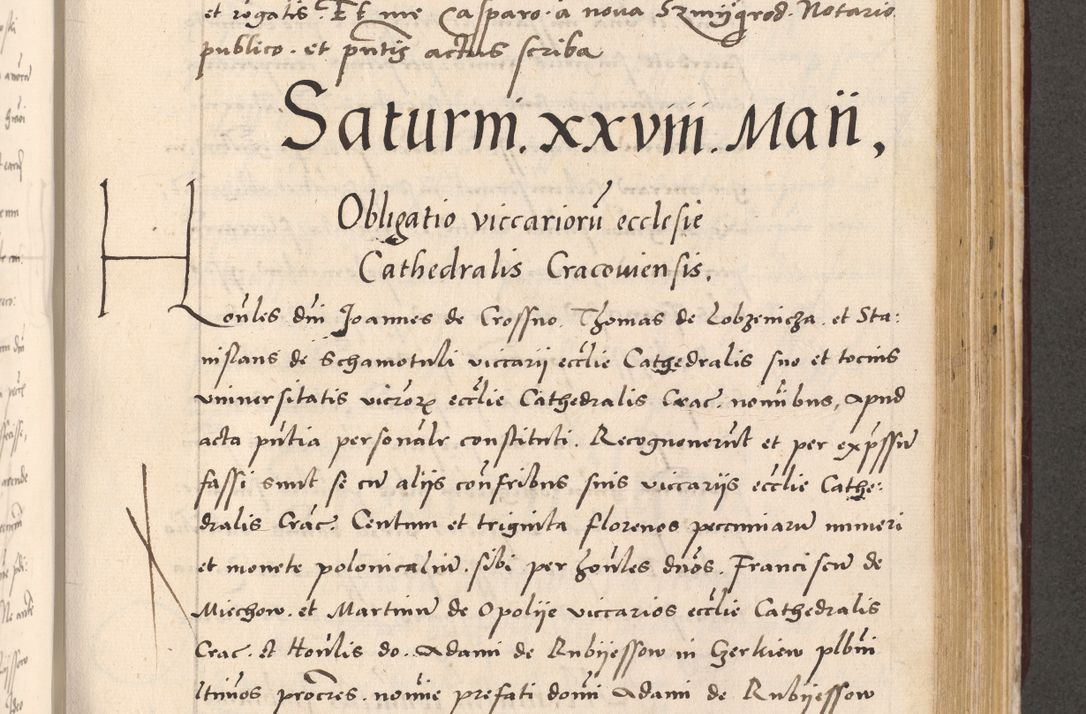 et rogatis. Et me Casparo a nova Szmygrod. Notario
publico. et pn̄tis actus scriba
Saturni. xxviii. Maii,
Obligatio viccariorū ecclesie
Cathedralis Cracouiensis.
Honl̄es dn̄i Joannes de Crossno. Thomas de Lobzenicza. et Sta:
nislaus de Schamotuli viccarij eccl̄ie Cathedralis suo et tocius
vniuersitatis vicr̄orꝝ eccl̄ie Cathedralis Crac. nom̄ibus, apud
acta pn̄tia personal̄r constituti. Recognouerūt et per exp̄ssū
fassi sunt se cū alijs confr̄ibus suis viccarijs eccl̄ie Cathe:
dralis Crac̄. Centum et triginta florenos pecuniarū numeri
et monete polonicaliū. sibi per honl̄es dn̄os. Franciscū de
Miechow. et Martinū de Opolije viccarios eccl̄ie Cathedralis
Crac. et Honl̄is do. Adami de Rubijessow in Gerkiew plbn̄i
ltim̄os procr̄es. nom̄ie prefati domī Adami de Rubijessow